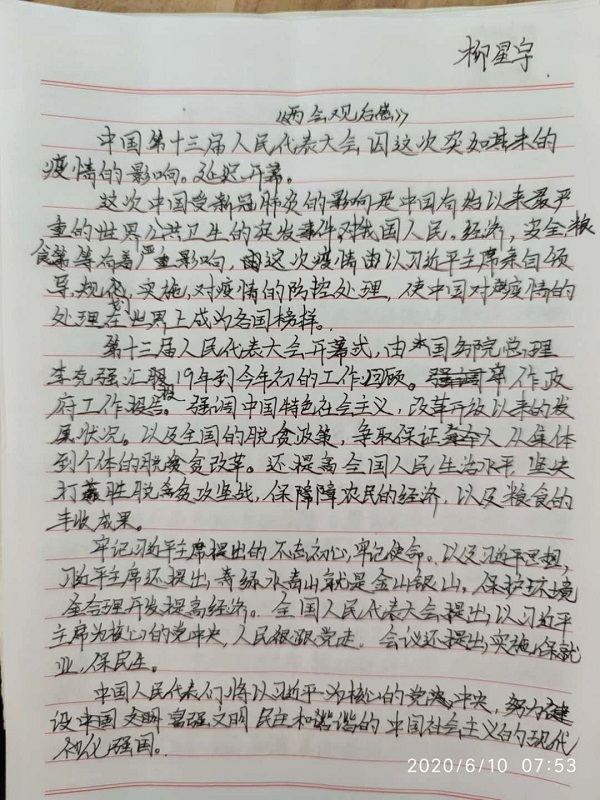 柳星宇
《两会观后感》
中国第十三届人民代表大会因这次突如其来的
疫情的影响。延迟开幕。
这次中国受新冠肺炎的影响是中国有始以来最严
重的世界公共卫生的突发事件,对我国人民。经济,安全粮
食等等有着严重影响,由这次疫情由以习近平主席亲自领
导,规划,实施,对疫情的防控处理,使中国对疫情的
处理在世界上成为各国榜样。
第十三届人民代表大会开幕式,由国务院总理
李克强汇报19年到今年初的工作回顾。作政
府工作报告。强调中国特色社会主义,改革开放以来的发
展状况。以及全国的脱贫政策,争取保证从集体
到个体的脱贫改革。还提高全国人民生活水平 坚决
打赢胜脱贫攻坚战,保障障农民的经济,以及粮食的
丰收成果。
牢记习近平主席提出的不忘初心,牢记使命。以及习近平思想,
习近平主席还提出,青绿水青山就是金山银山,保护环境
合理开发提高经济。全国人民代表大会提出,以习近平
主席为核心的党中央,人民跟党走。会议还提出,实施,保就
业,保民生。
中国人民代表们将以习近平为核心的党中央,努力建
设中国文明富强文明民主和谐谐的中国社会主义的现代
化强国。
2020/6/10 07:53